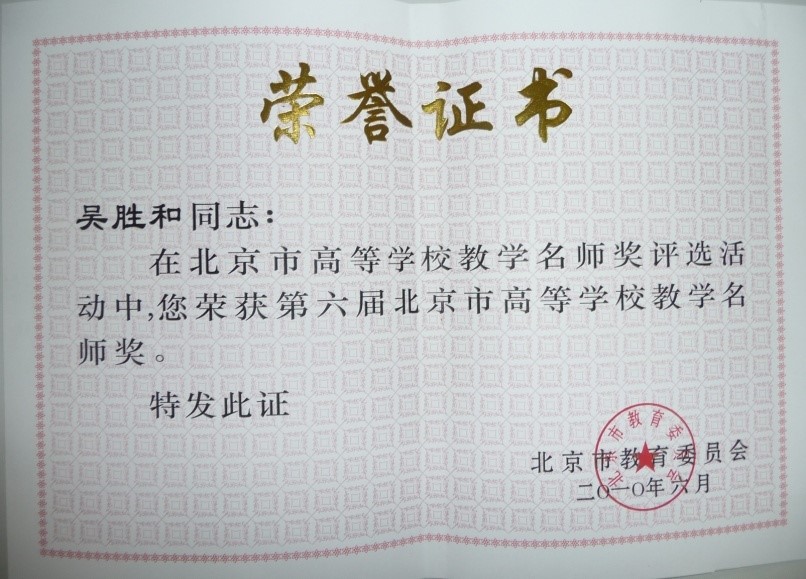 荣誉证书
吴胜和同志：
在北京市高等学校教学名师奖评选活
动中,您荣获第六届北京市高等学校教学名
师奖。
特发此证
北京市教育委员会
北京市教育委员会
二〇一〇年六月